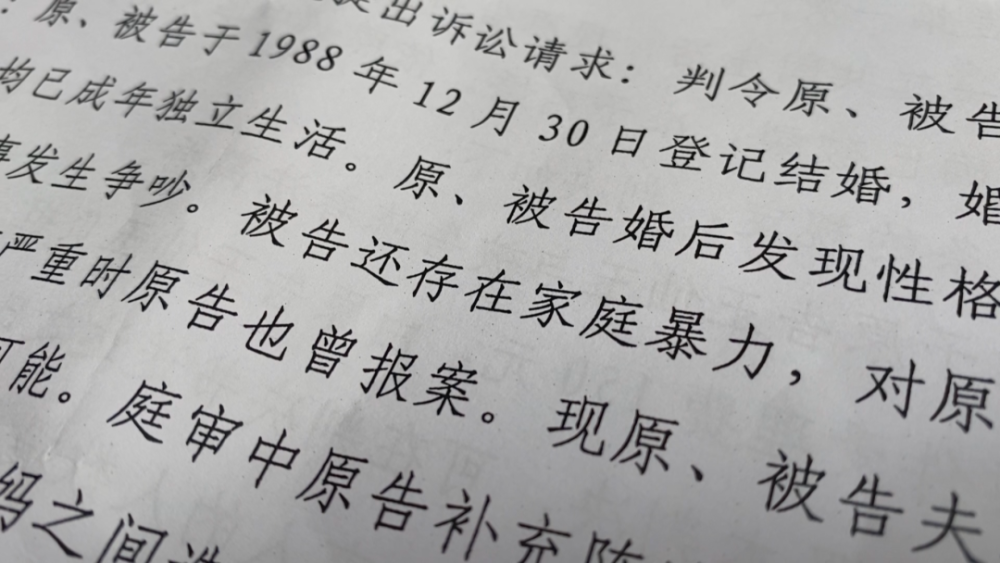 提出诉讼请求：判令原、被告
：原、被告于1988年12月30日登记结婚，婚
均已成年独立生活。原、被告婚后发现性格
事发生争吵。被告还存在家庭暴力，对原
严重时原告也曾报案。现原、被告夫
可能。庭审中原告补充陈
之间